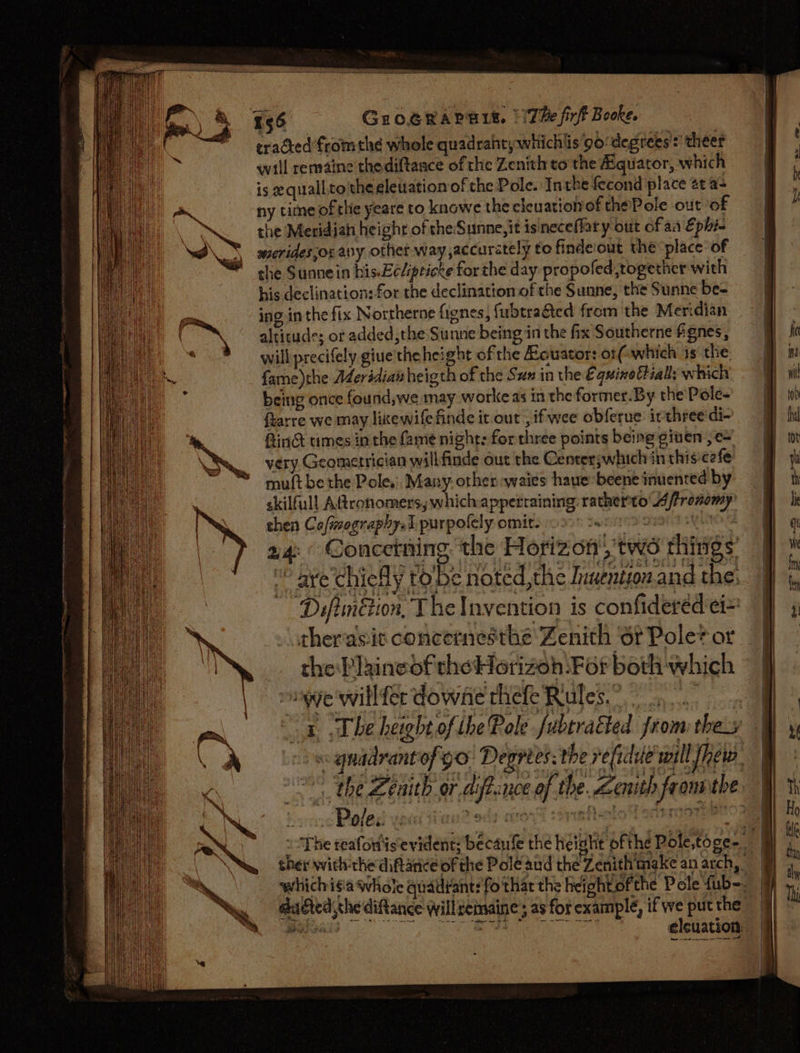 156 GEOGRAPHIE. The first Booke.
tracted from the whole quadrant, which is 90 degrees: theer
will remaine the distance of the Zenith to the Æquator, which
is æquall to the eleuation of the Pole. In the second place at a-
ny time of the yeare to knowe the eleuation of the Pole out of
the Meridian height of the Sunne, it is necessary out of an Ephi-
merides, or any other way, accurately to finde out the place of
the Sunne in his Eclipticke for the day proposed, together with
his declination: for the declination of the Sunne, the Sunne be-
ing in the six Northerne signes, subtracted from the Meridian
altitude; or added, the Sunne being in the six Southerne signes,
will precisely giue the height of the Æquator: or (which is the
same) the Meridian heigth of the Sun in the Equinoctiall; which
being once found, we may worke as in the former. By the Pole-
starre we may likewise finde it out, if wee obserue it three di-
stinct times in the same night: for three points being giuen, e-
very Geometrician will finde out the Center; which in this case
must be the Pole. Many other waies haue beene inuented by
skilfull Astronomers, which appertaining rather to Astronomy
then Cosmography, I purposely omit.
24 Concerning the Horizon, two things
are chiefly to be noted, the Inuention and the
Distinction. The Invention is considered ei-
ther as it concernes the Zenith or Pole: or
the Plaine of the Horizon. For both which
we will set downe these Rules.
1 The height of the Pole subtracted from the
quadrant of 90 Degrees, the residue will shew
the Zenith or distance of the Zenith from the
Pole.
The reason is evident; because the height of the Pole, toge-
ther with the distance of the Pole and the Zenith make an arch,
which is a whole quadrant: so that the height of the Pole sub-
ducted, the distance will remaine; as for example, if we put the
eleuation